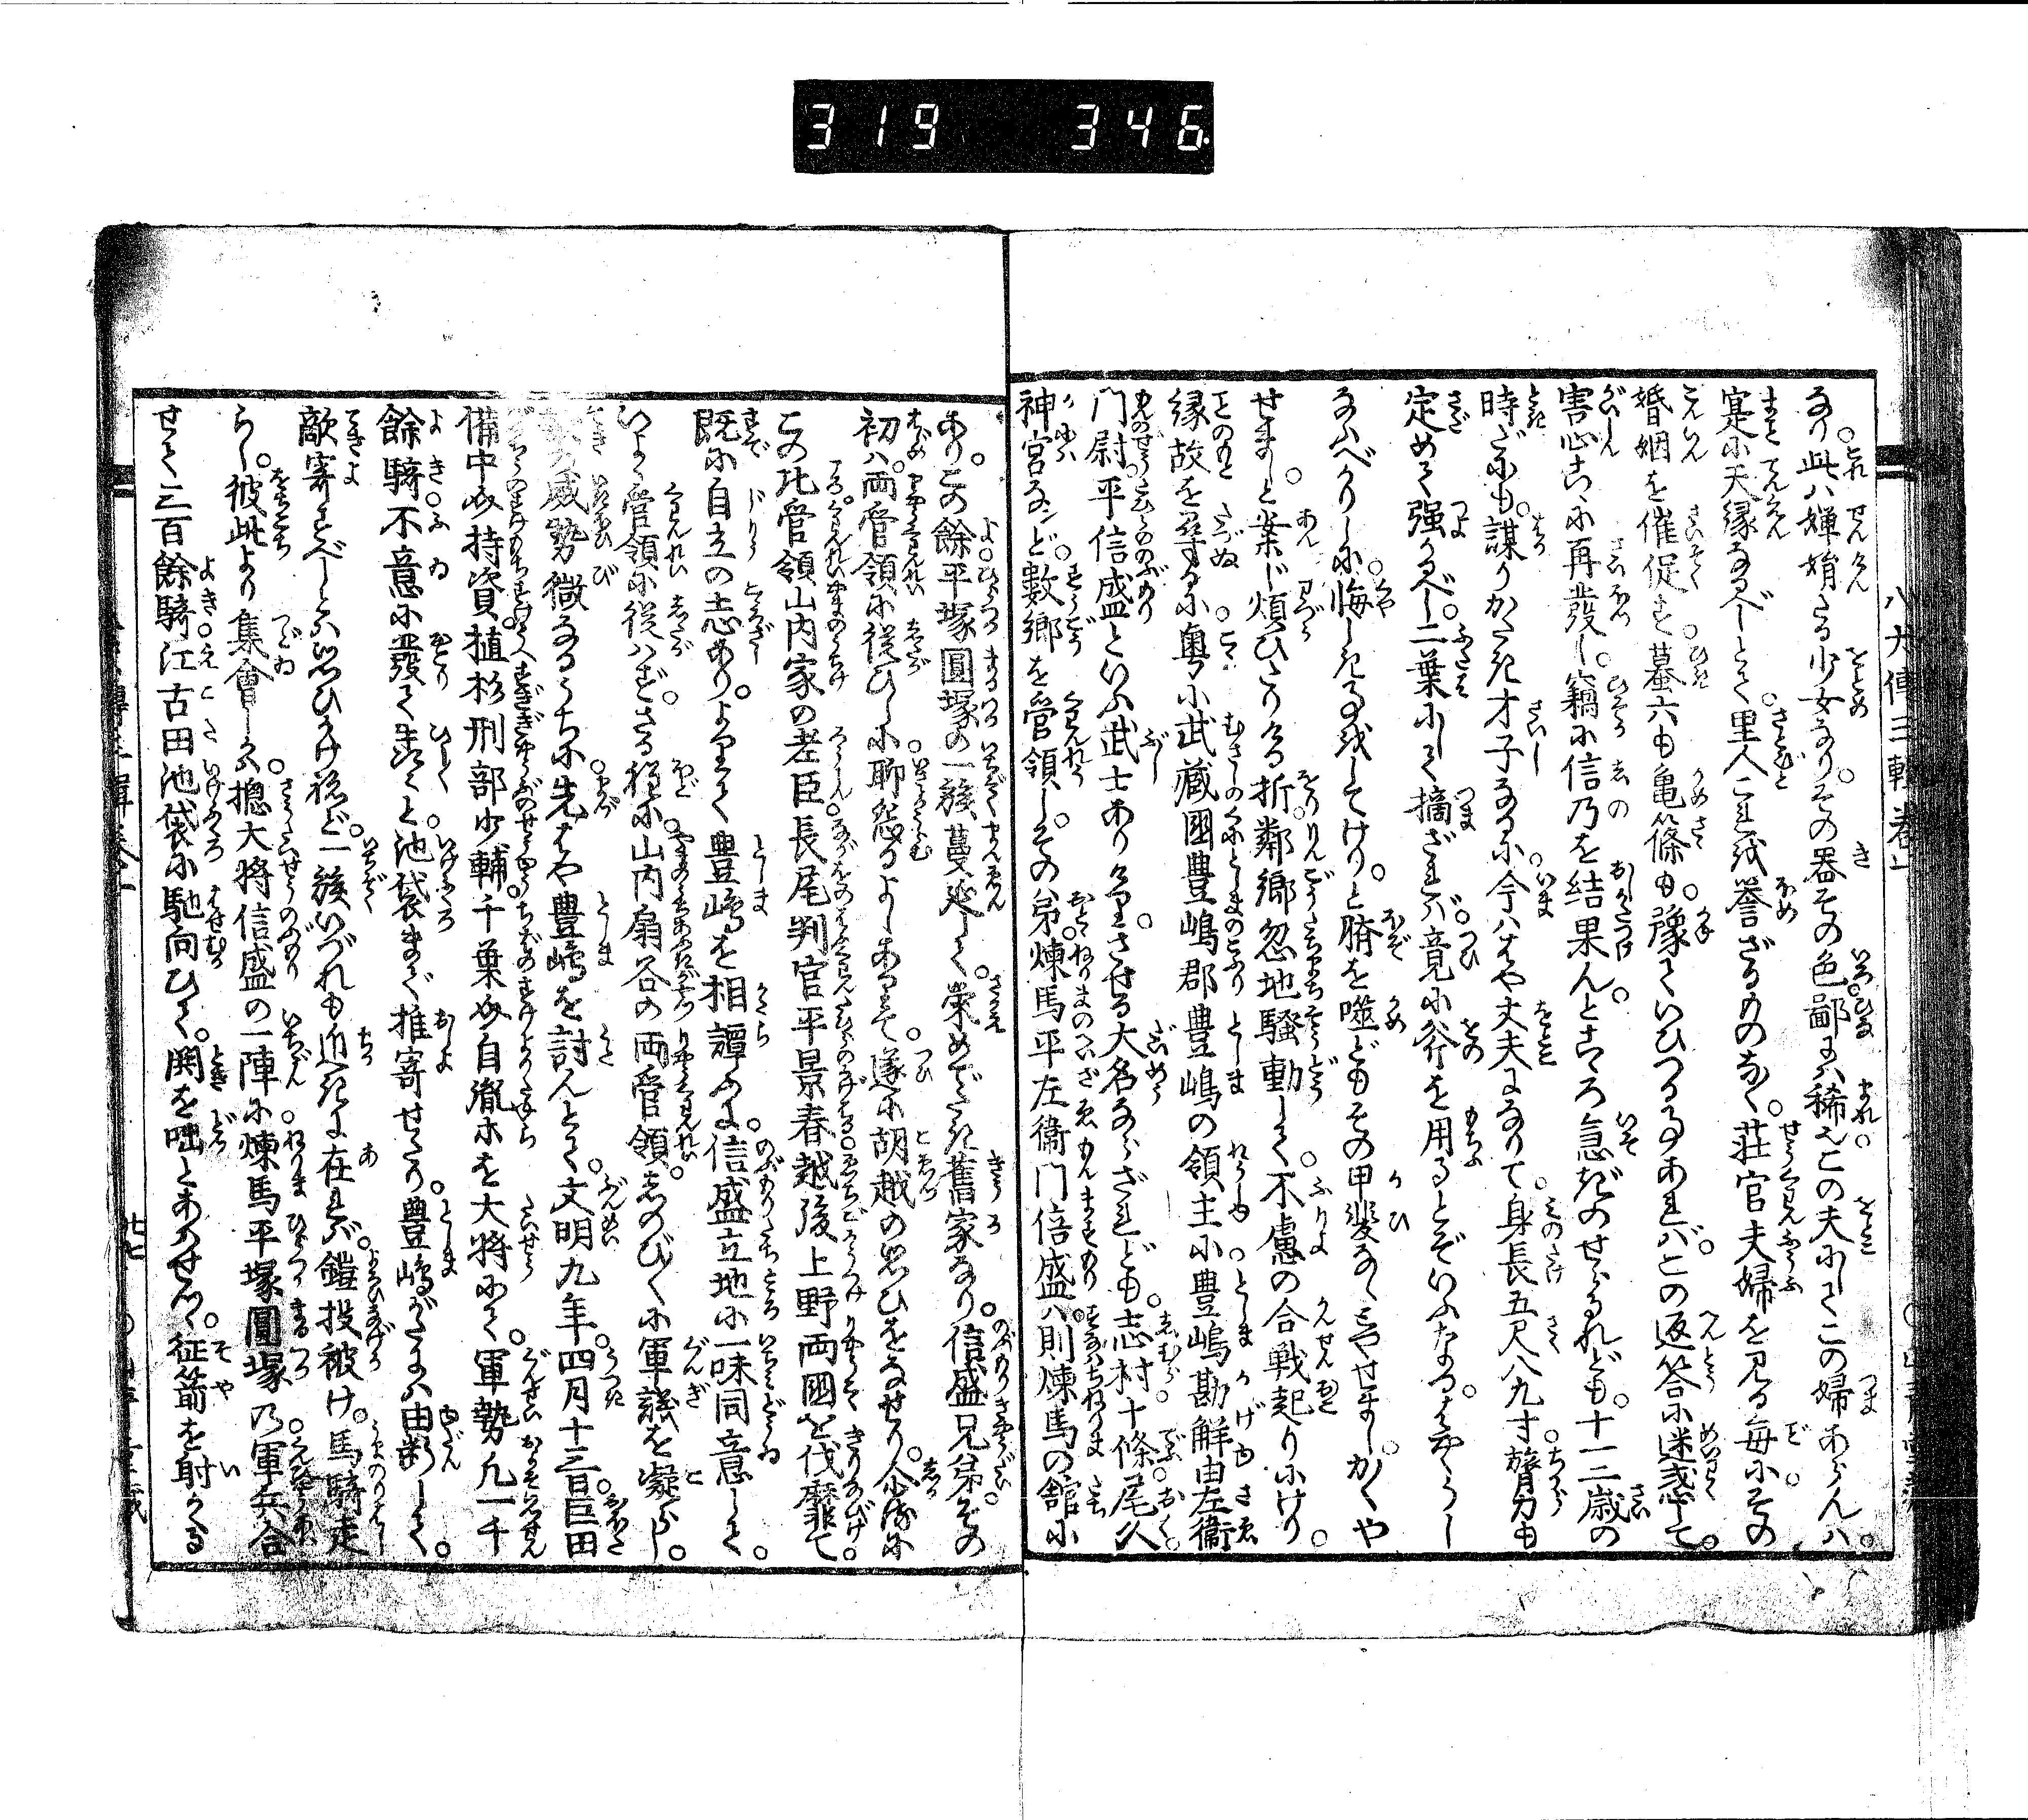 319 346
八犬傳三輯卷一
なり此は嬋娟たる少女なり。その器その色鄙には稀也。この夫にしてこの婦あらんは。
寔に天縁なるべしとて。里人これを誉ざるものなく。荘官夫婦を見る毎に。その
婚姻を催促す。蟇六も亀篠も。豫ていひつる事あれば。この返答に迷惑して。
害心さらに再發し。竊に信乃を結果んところ急ぎのせらるれども。十一二歳の
時だにも。謀りがたき才子なるに。今ははや丈夫になりて。身長五尺八九寸。膂力も
定めて強かるべし。二葉にして摘ざれば。竟に斧を用るとぞいふなる。はやうし
なふべかりしに悔しき事をしてけり。と臍を噬どもその甲斐なし。とやせまし。かくや
せまし。と案じ煩ひたりける折。鄰郷忽地騒動して。不慮の合戦起りにけり。
縁故を尋るに。粤に武藏國豊嶋郡豊嶋の領主に。豊嶋勘解由左衛
門尉。平信盛といふ武士ありけり。させる大名ならざれども。志村。十條。尾久。
神宮なンど。數郷を管領し。その弟煉馬平左衛門倍盛は。則煉馬の舘に
あり。この餘平塚圓塚の一族蔓延して。榮めでたき舊家なり。信盛兄弟。その
初は。両管領に従ひしに。聊怨るよしありて。遂に胡越の思ひをなせり。尓後に
この比管領山内家の老臣。長尾判官平景春越後上野両國を伐靡て。
既に自立の志あり。よりて豊嶋を相譚ふに。信盛立地に一味同意して。
いよ〱管領に従はず。さる程に。山内扇谷の両管領。しのび〱に軍議を凝らし。
威勢微なるうちに。先はや豊嶋を討んとて。文明九年。四月十三日。巨田
備中介持資。植杉刑部少輔。千葉介自胤ホを大将にて。軍勢凡一千
餘騎。不意に發て逼々と。池袋まで推寄せたり。豊嶋がかたには由断して。
敵寄すべしとは思ひかけねど。一族いづれも近きに在れば。鎧投被け。馬騎走
らし。彼此より集會しかば。揔大将信盛の一陣に。煉馬平塚圓塚の軍兵。合
せて三百餘騎。江古田池袋に馳向ひて。鬨を咄とあはせつゝ。征箭を射かくる